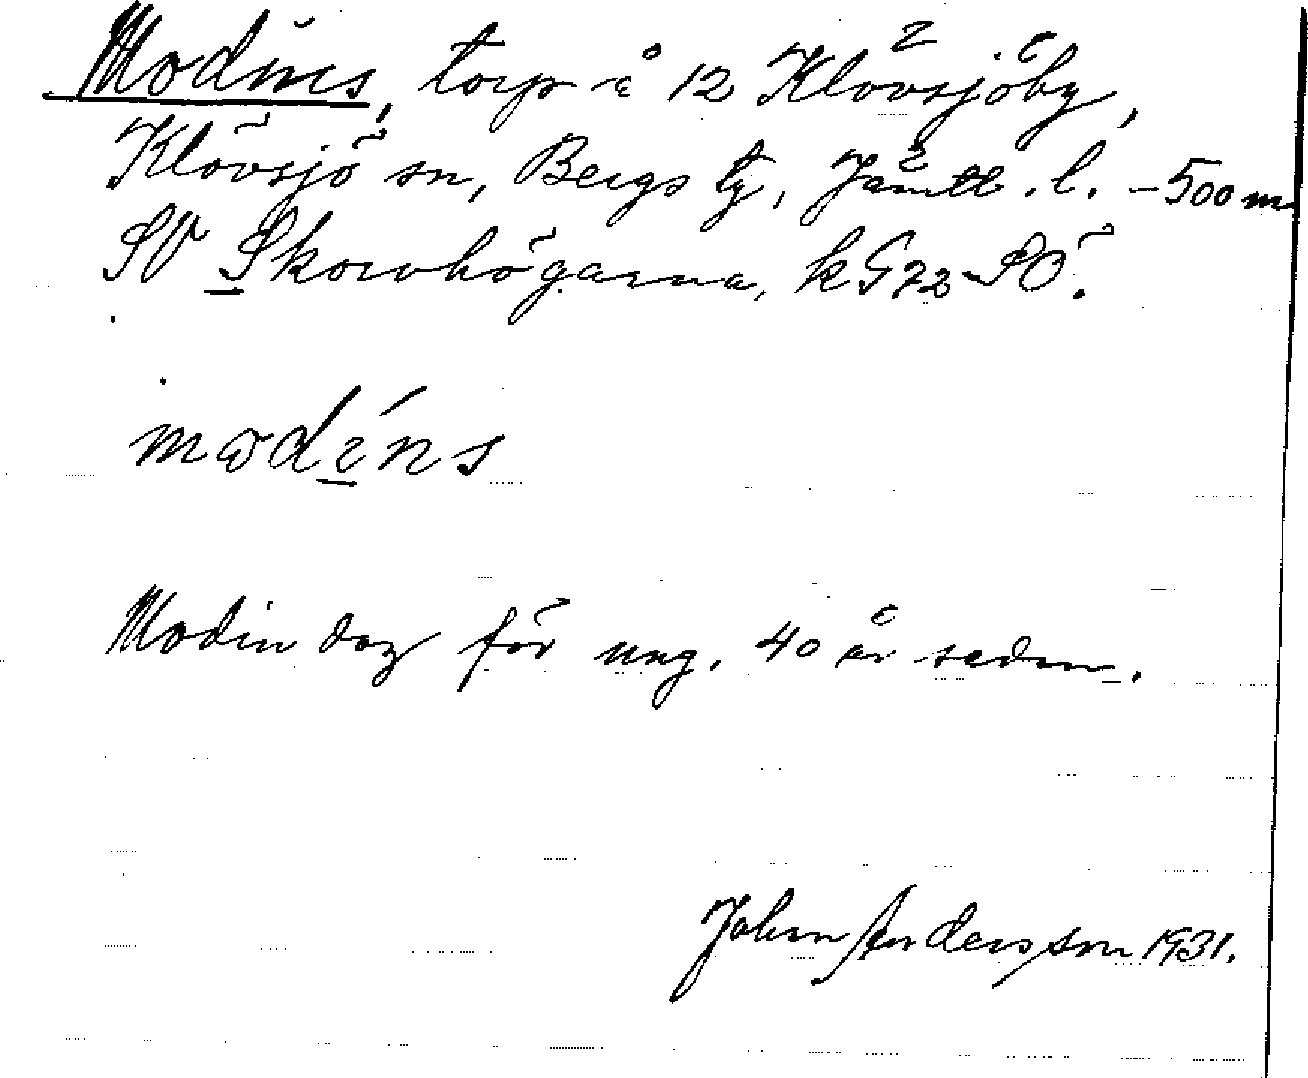 Modins, torp å 12 Klövsjöby,
Klövsjö sn, Bergs tg, Jämtl. l. – 500 m
SV Skorvhögarna, k G72 SÖ.
modíns
Modin dog för ung. 40 år sedan.
Johan Andersson 1931.